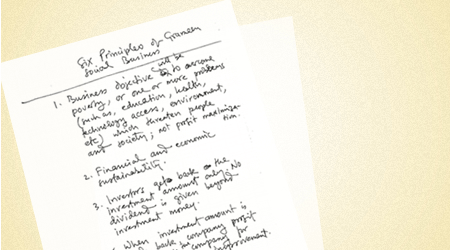 Six Principles of Grameen
Social Business
1. Business objective will be to overcome
poverty, or one or more problems
(such as, education, health,
technology access, environment,
etc) which threaten people
and society; not profit maximiza-
tion.
2. Financial and economic
sustainability.
3. Investors get back the
investment amount only. No
dividend is given beyond
investment money.
When investment amount is
back, company profit
company for
improvement.